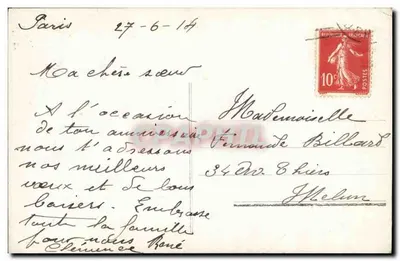 Paris 27-6-14
Ma chère sœur
A l'occasion
de ton anniversaire
nous t'adressons
nos meilleurs
vœux et de bons
baisers. Embrasse
toute la famille
pour nous René
Clémence
10c
POSTES
Mademoiselle
Fernande Billard
34 Av Thiers
Melun